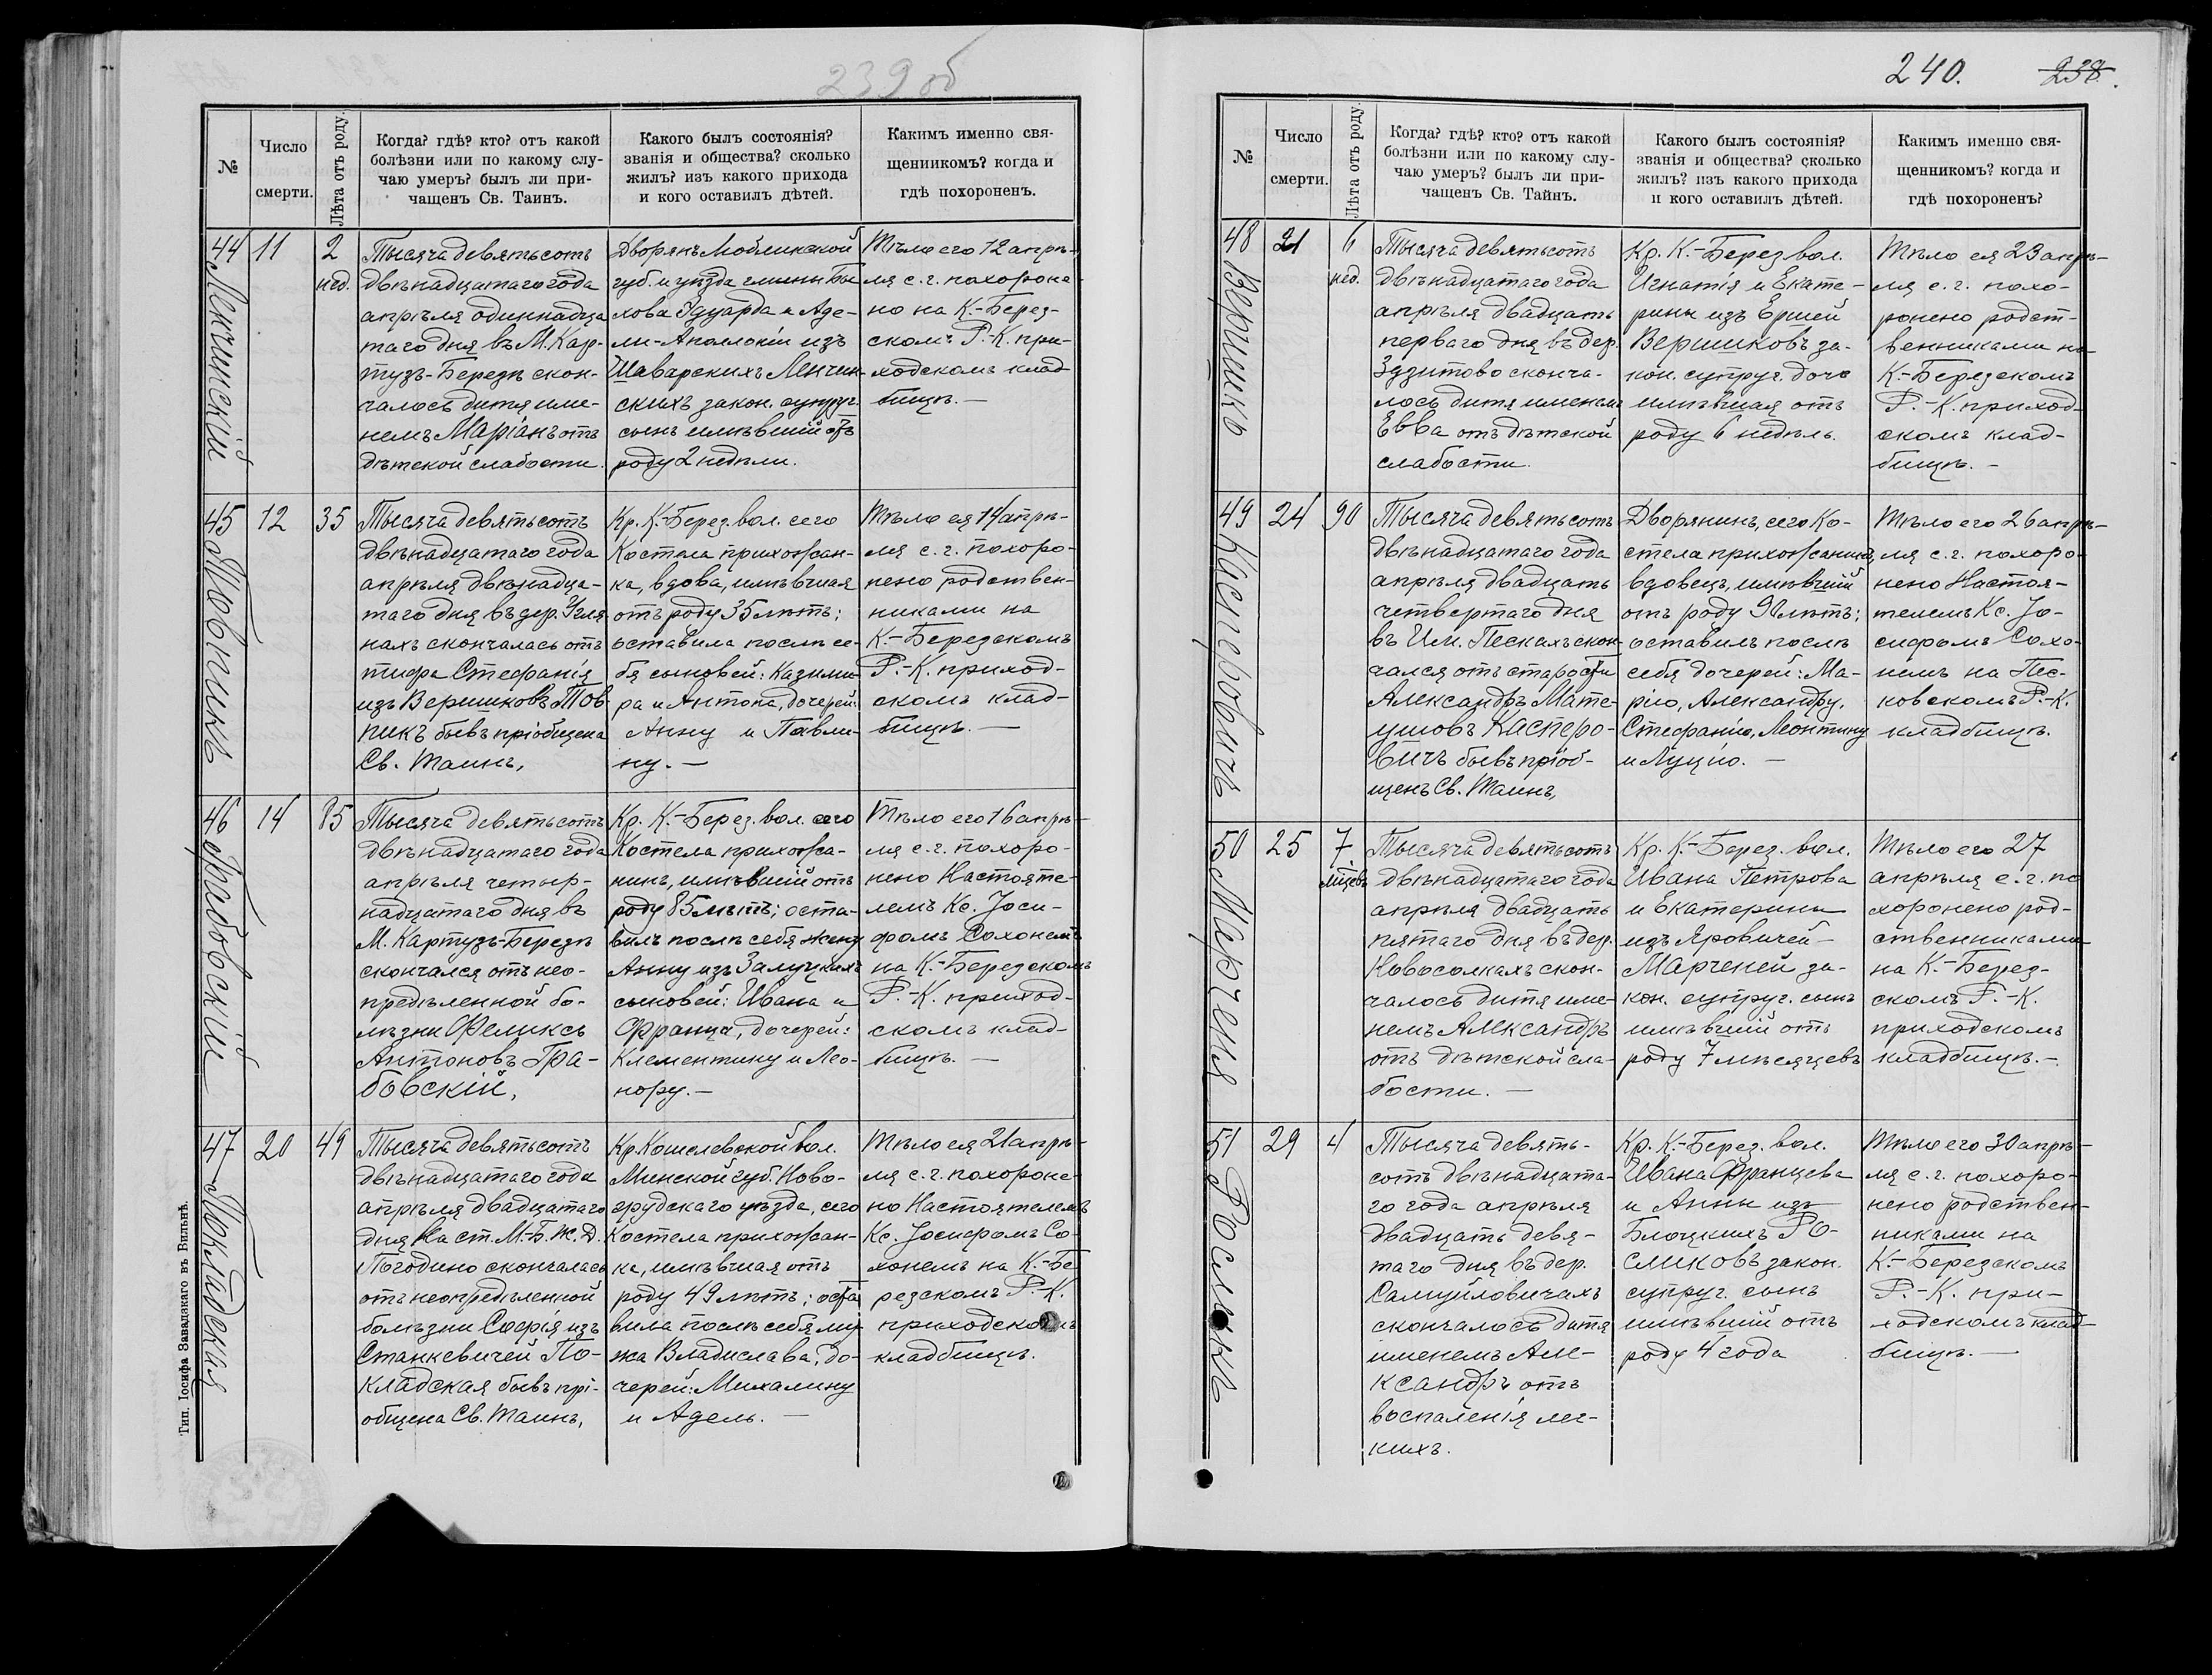 239 об
№
Число
смерти.
Лѣта отъ роду.
Когда? гдѣ? кто? отъ какой
болѣзни или по какому слу-
чаю умеръ? былъ ли при-
чащенъ Св. Таинъ.
Какого былъ состоянія?
званія и общества? сколько
жилъ? изъ какого прихода
и кого оставилъ дѣтей.
Какимъ именно свя-
щенникомъ? когда и
гдѣ похороненъ.
44
Ленчинскій
11
2
нед.
Тысяча девятьсотъ
двѣнадцатаго года
апрѣля одиннадца
таго дня въ М. Кар-
тузъ-Березѣ скон-
чалось дитя име-
немъ Маріанъ отъ
дѣтской слабости.
Дворянъ
губ. и уѣзда гмины Бы
хова Эдуарда и Аде-
ли-Аполлоніи изъ
Шаварскихъ Ленчин
скихъ закон. супруг.
сынъ имѣвшій отъ
роду 2 недѣли.
Тѣло его 12 апрѣ-
ля с. г. похороне
но на К.-Берез-
скомъ Р.-К. при-
ходскомъ клад
бищѣ. —
45
Товпикъ
12
35
Тысяча девятьсотъ
двѣнадцатаго года
апрѣля двѣнадца-
таго дня въ дер. Угля
нахъ скончалась отъ
тифа Стефанія
изъ Вершиковъ Тов-
пикъ бывъ пріобщена
Св. Таинъ,
Кр. К.-Берез. вол. сего
Костела прихожан-
ка, вдова, имѣвшая
отъ роду 35 лѣтъ;
оставила послѣ се-
бя сыновей: Казими
ра и Антона, дочерей:
Анну и Павли-
ну. —
Тѣло ея 14 апрѣ-
ля с. г. похоро-
нено родствен-
никами на
К.-Березскомъ
Р.-К. приход-
скомъ клад-
бищѣ. —
46
Грабовскій
14
85
Тысяча девятьсотъ
двѣнадцатаго года
апрѣля четыр-
надцатаго дня въ
М. Картузъ-Березѣ
скончался отъ нео-
предѣленной бо-
лѣзни Феликсъ
Антоновъ Гра-
бовскій,
Кр. К.-Берез. вол. сего
Костела прихожа-
нинъ, имѣвшій отъ
роду 85 лѣтъ; оста-
вилъ послѣ себя жену
Анну изъ Залуцкихъ
сыновей: Ивана и
Франца, дочерей:
Клементину и Лео-
нору. —
Тѣло его 16 апрѣ-
ля с. г. похоро-
нено Настояте-
лемъ Кс. Іоси-
фомъ Сохонемъ
на К.-Березскомъ
Р.-К. приход-
скомъ клад-
бищѣ. —
47
Покладская
20
49
Тысяча девятьсотъ
двѣнадцатаго года
апрѣля двадцатаго
дня на ст. М.-Б. Ж. Д.
Погодино скончалась
отъ неопредѣленной
болѣзни Софія изъ
Станкевичей По-
кладская бывъ прі-
общена Св. Таинъ,
Кр. Кошелевской вол.
Минской губ. Ново-
грудскаго уѣзда, сего
Костела прихожан-
ка, имѣвшая отъ
роду 49 лѣтъ; оста
вила послѣ себя му
жа Владислава, до-
черей: Михалину
и Адель. —
Тѣло ея 21 апрѣ-
ля с. г. похороне-
но Настоятелемъ
Кс. Іосифомъ Со-
хонемъ на К.-Бе
резскомъ Р.-К.
приходскомъ
кладбищѣ.
Тип. Іосифа Завадзкаго въ Вильнѣ.
240.
238.
№
Число
смерти.
Лѣта отъ роду.
Когда? гдѣ? кто? отъ какой
болѣзни или по какому слу-
чаю умеръ? былъ ли при-
чащенъ Св. Таинъ.
Какого былъ состоянія?
званія и общества? сколько
жилъ? изъ какого прихода
и кого оставилъ дѣтей.
Какимъ именно свя-
щенникомъ? когда и
гдѣ похороненъ?
48
Вершикъ
21
6
нед.
Тысяча девятьсотъ
двѣнадцатаго года
апрѣля двадцать
перваго дня въ дер.
Здзитово сконча-
лось дитя именемъ
Евва отъ дѣтской
слабости.
Кр. К.-Берез. вол.
Игнатія и Екате-
рины изъ Ершей
Вершиковъ за-
кон. супруг. дочь
имѣвшая отъ
роду 6 недѣль.
Тѣло ея 23 апрѣ-
ля с. г. похо-
ронено родст-
венниками на
К.-Березскомъ
Р.-К. приход-
скомъ клад-
бищѣ. —
49
Касперовичъ
24
90
Тысяча девятьсотъ
двѣнадцатаго года
апрѣля двадцать
четвертаго дня
въ Им. Пескахъ скон-
чался отъ старости
Александръ Мате-
ушовъ Касперо-
вичъ бывъ пріоб-
щенъ Св. Таинъ,
Дворянинъ, сего Ко-
стела прихожанинъ,
вдовецъ, имѣвшій
отъ роду 90 лѣтъ;
оставилъ послѣ
себя дочерей: Ма-
рію, Александру,
Стефанію, Леонтину
и Луцію. —
Тѣло его 26 апрѣ-
ля с. г. похоро-
нено Настоя-
телемъ Кс. Іо-
сифомъ Сохо-
немъ на Пес-
ковскомъ Р.-К.
кладбищѣ.
50
Марченя
25
7
мѣсцевъ
Тысяча девятьсотъ
двѣнадцатаго года
апрѣля двадцать
пятаго дня въ дер.
Новоселкахъ скон-
чалось дитя име-
немъ Александръ
отъ дѣтской сла-
бости. —
Кр. К.-Берез. вол.
Ивана Петрова
и Екатерины
изъ Яровичей —
Марченей за-
кон. супруг. сынъ
имѣвшій отъ
роду 7 мѣсяцевъ
Тѣло его 27
апрѣля с. г. по
хоронено род-
ственниками
на К.-Берез-
скомъ Р.-К.
приходскомъ
кладбищѣ. —
51
Росликъ
29
4
Тысяча девять-
сотъ двѣнадцата-
го года апрѣля
двадцать девя-
таго дня въ дер.
Самуйловичахъ
скончалось дитя
именемъ Але-
ксандръ отъ
воспаленія лег-
кихъ.
Кр. К.-Берез. вол.
Ивана Францева
и Анны изъ
Блоцкихъ Ро-
сликовъ закон.
супруг. сынъ
имѣвшій отъ
роду 4 года
Тѣло его 30 апрѣ-
ля с. г. похоро-
нено родствен-
никами на
К.-Березскомъ
Р.-К. при-
ходскомъ клад-
бищѣ. —